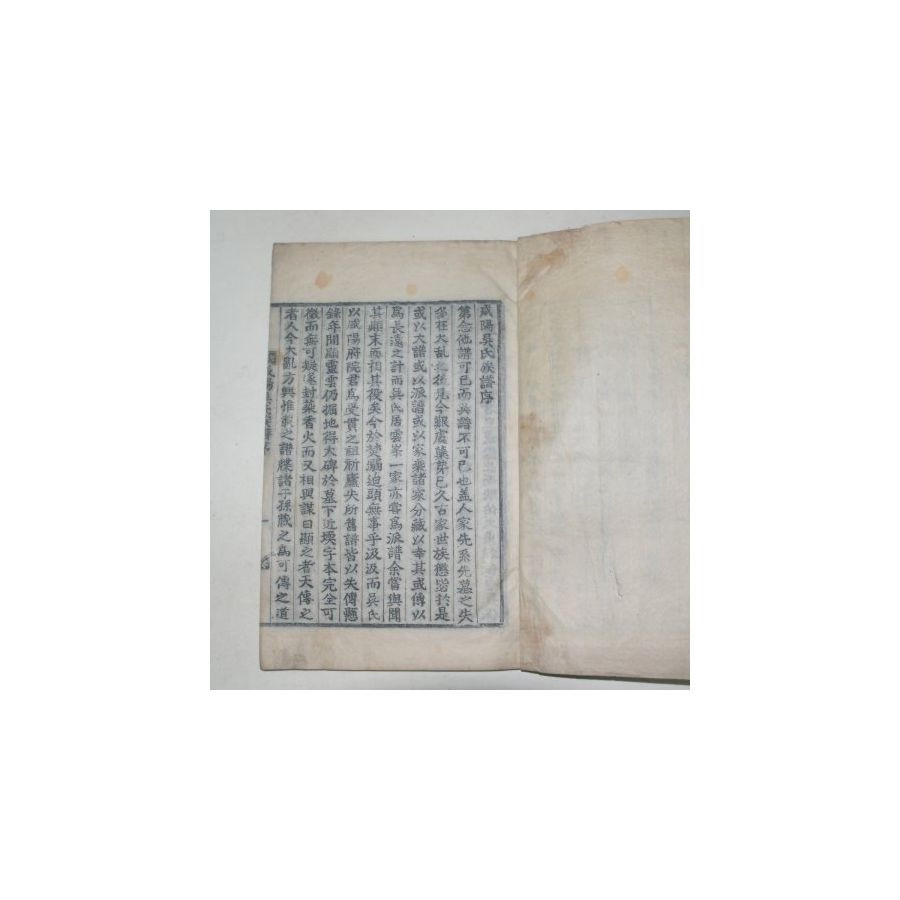 咸陽吳氏族譜序
第念他譜可已而吳譜不可已也盖人家先系先墓之失
多在大亂之後見今艱虞孽芽已久古家世族懲毖於是
或以大譜或以派譜或以家乘諸家分藏以幸其或傳以
爲長遠之計而吳氏居雲峯一家亦當爲派譜余嘗與聞
其顚末而相其役矣今於焚迫頭無事乎汲汲而吳氏
以咸陽府院君爲受貫之祖所失所舊譜皆以失傳懸
錄年間靈雲仍掘地得大碑於墓下近堧字本完全可
徵而無可疑遂封塋香火而又相與謀曰顯之者天傳之
者人今大亂方興惟之譜牒諸子孫藏之爲可傳之道